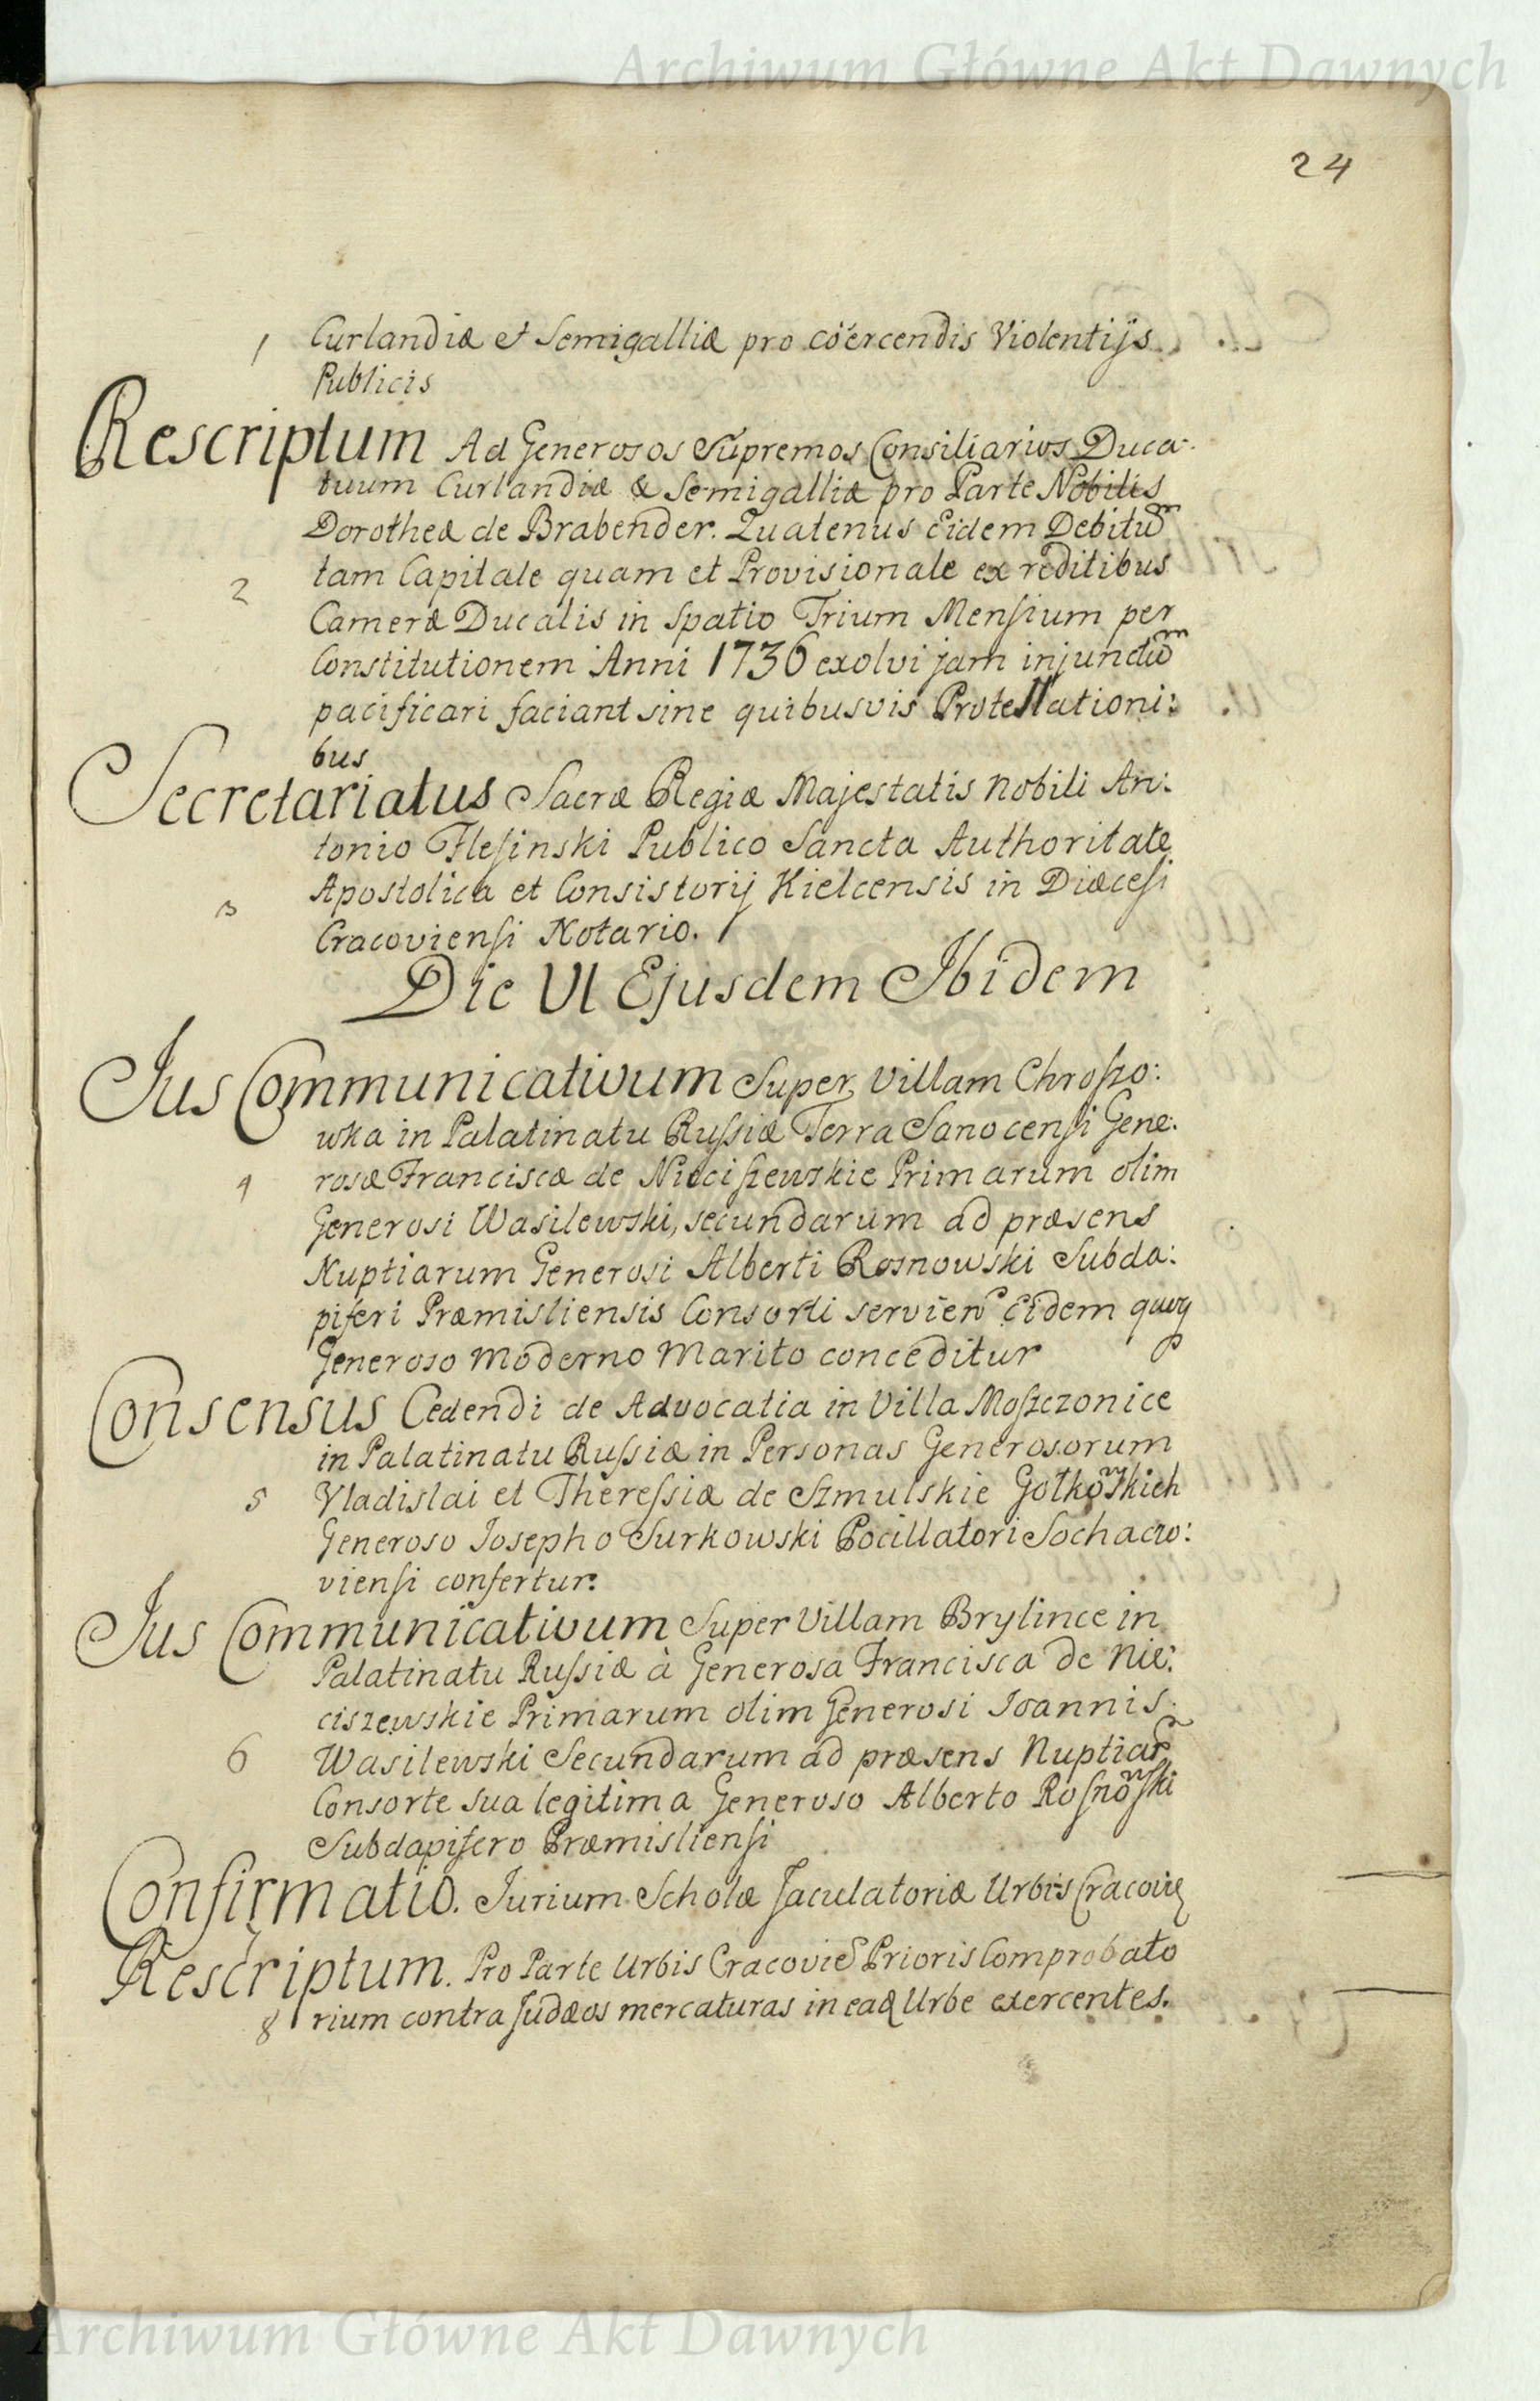 Archiwum Główne Akt Dawnych
24
1 Curlandiæ et Semigalliæ pro coërcendis Violentijs
Publicis
Rescriptum Ad Generosos Supremos Consiliarios Duca-
tuum Curlandiæ & Semigalliæ pro Parte Nobilis
Dorotheæ de Brabender. Quatenus Eidem Debitũm
2 tam Capitale quam et Provisionale ex reditibus
Cameræ Ducalis in Spatio Trium Mensium per
Constitutionem Anni 1736 exolvi jam injunctũm
pacificari faciant sine quibusvis Protestationi:
bus
Secretariatus Sacræ Regiæ Majestatis Nobili An:
tonio Flesinski Publico Sancta Authoritate
3 Apostolica et Consistorij Kielcensis in Diæcesi
Cracoviensi Notario.
Die VI Ejusdem Ibidem
Jus Communicativum Super Villam Chroszo:
wka in Palatinatu Russiæ Terra Sanocensi Gene:
4 rosæ Franciscæ de Nieciszewskie Primarum olim
Generosi Wasilewski, secundarum ad præsens
Nuptiarum Generosi Alberti Rosnowski Subda:
piferi Præmisliensis Consorti servien Eidem quoq
Generoso Moderno Marito conceditur
Consensus Cedendi de Advocatia in Villa Moszczonice
in Palatinatu Russiæ in Personas Generosorum
5 Vladislai et Theressiæ de Szmulskie Gołkowskich
Generoso Josepho Surkowski Pocillatori Sochaczo:
viensi confertur.
Jus Communicativum Super Villam Brylince in
Palatinatu Russiæ à Generosa Francisca de Nie:
ciszewskie Primarum olim Generosi Joannis
6 Wasilewski Secundarum ad præsens Nuptiar
Consorte sua legitima Generoso Alberto Rosnowski
Subdapifero Præmisliensi
Confirmatio. Jurium Scholæ Jaculatoriæ Urbis Cracovię
7
Rescriptum. Pro Parte Urbis Cracovie Prioris Comprobato
8 rium contra Judæos mercaturas in eaq Urbe exercentes.
Archiwum Główne Akt Dawnych